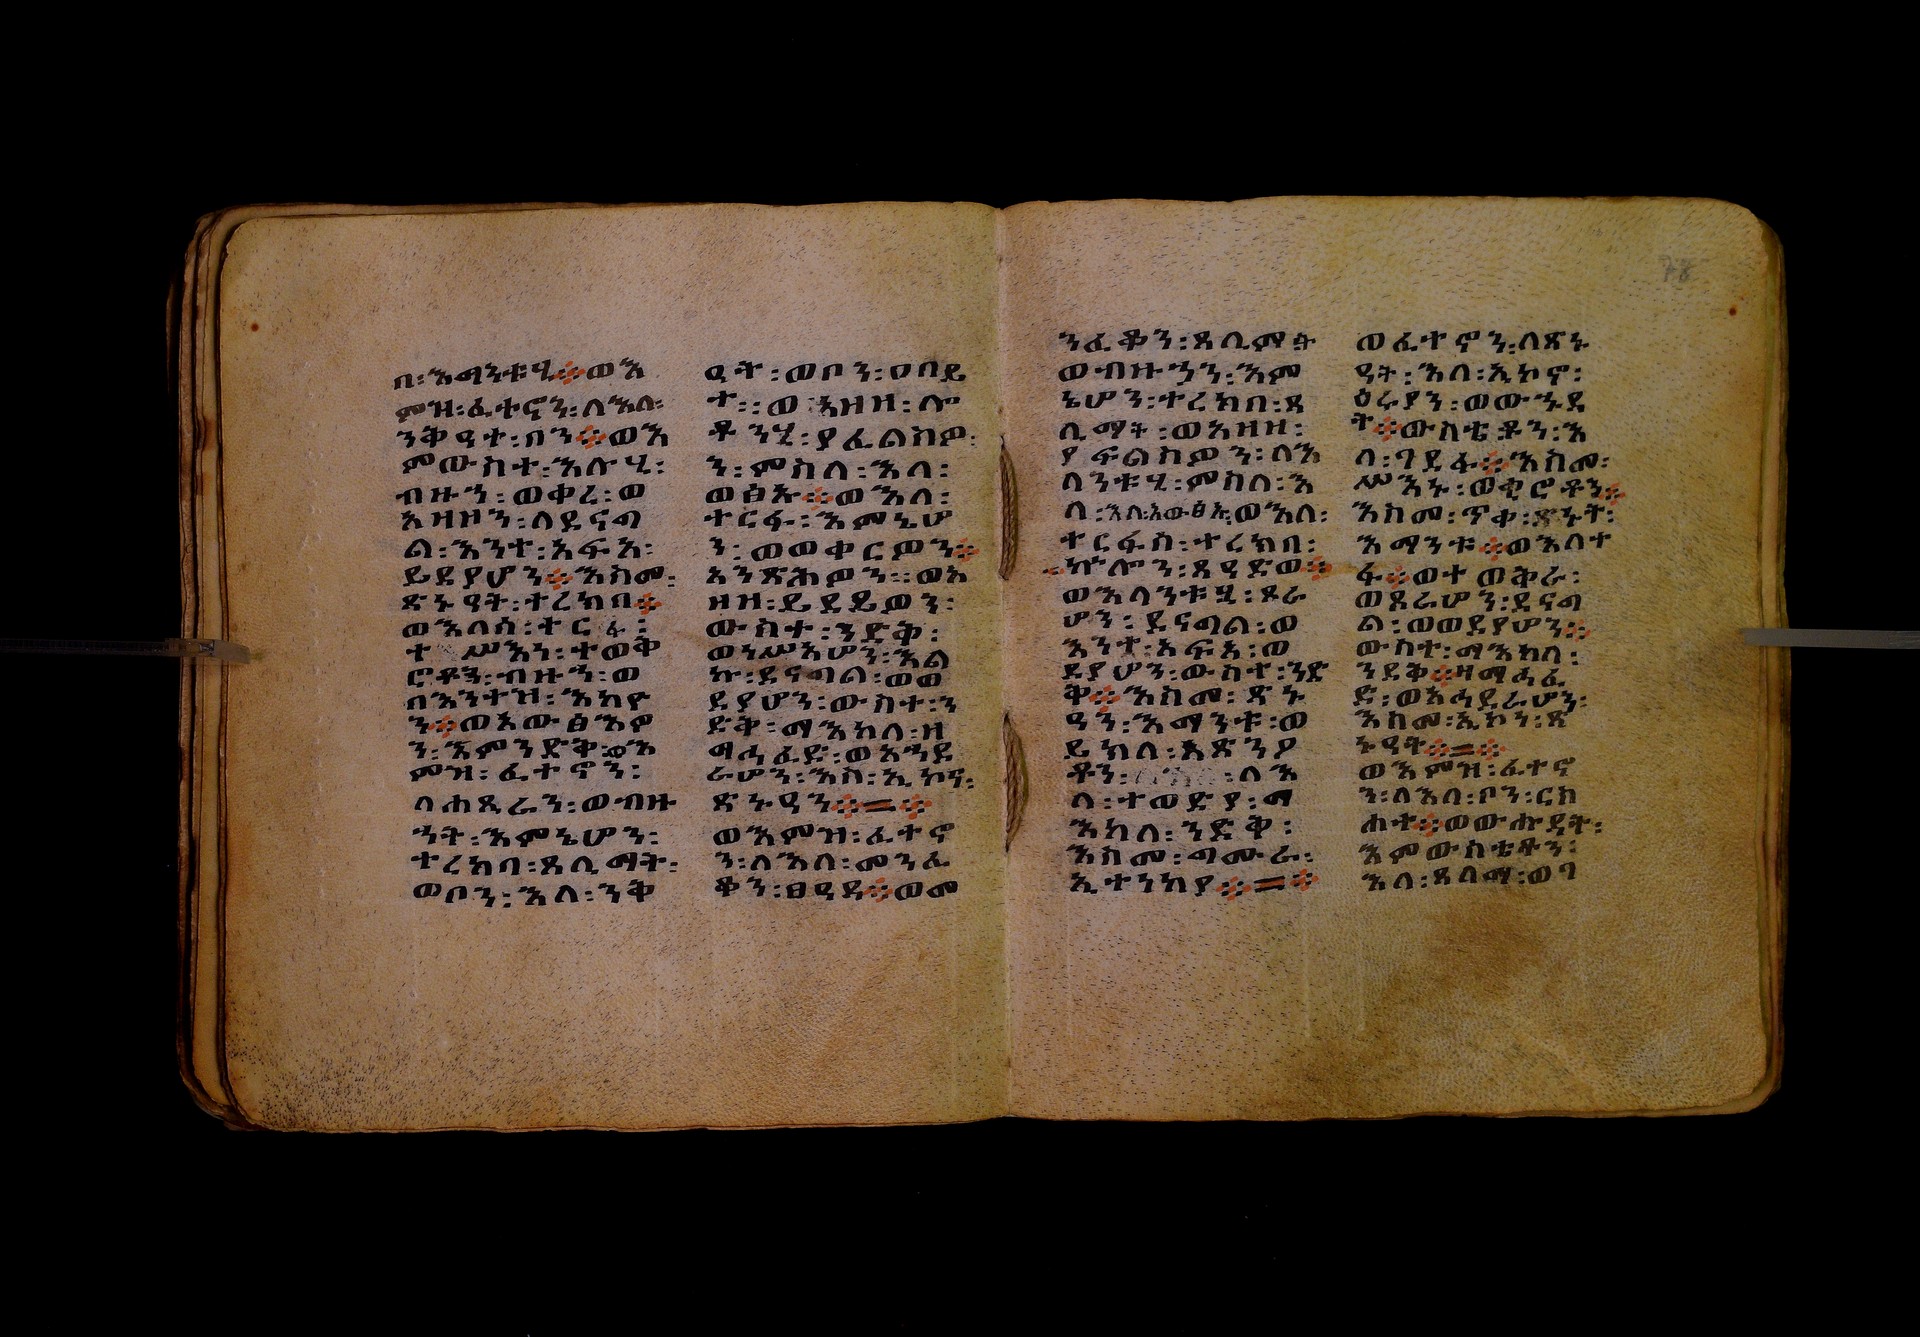 በ፡እማንቱሂ፨ወእ
ምዝ፡ፈተኖን፡ለእለ፡
ንቅዓተ፡በን፨ወእ
ምውስተ፡እሉሂ፡
ብዙኀ፡ወቀረ፡ወ
አዘዞን፡ለደናግ
ል፡እንተ፡አፍአ፡
ይደያሆን፨እስመ፡
ጽኑዓት፡ተረክበ፨
ወእለሰ፡ተርፋ፡
ተ ሥእነ፡ተወቅ
ሮቶን፡ብዙኀ፡ወ
በእንተዝ፡አክዮ
ን፨ወአውፅእዎ
ን፡እምንድቅ፡ወእ
ምዝ፡ፈተኖን፡
ለሐጺራን፡ወብዙ
ኃት፡እምኔሆን፡
ተረክባ፡ጸሊማት፡
ወቦን፡እለ፡ንቅ
ዓት፡ወቦን፡ዐበይ
ት፡፡ወ አዘዘ፡ሎ
ቶንሂ፡ያፈልስዎ፡
ን፡ምስለ፡እለ፡
ወፅኡ፨ወእለ፡
ተርፋ፡እምኔሆ
ን፡ወወቀርዎን፨
አንጽሕዎን፡፡ወአ
ዘዘ፡ይደይወን፡
ውስተ፡ንድቅ፡
ወነሥአሆን፡እል
ኩ፡ደናግል፡ወወ
ደያሆን፡ውስተ፡ን
ድቅ፡ማእከለ፡ዘ
ማሓፈድ፡ወአኀደ
ራሆን፡እስ፡ኢኮና፡
ጽኑዓን፨=፨
ወእምዝ፡ፈተኖ
ን፡ለእለ፡መንፈ
ቆን፡ፀዓዳ፨ወመ
ንፈቆን፡ጸሊማት
ወብዙኃን፡እም
ኔሆን፡ተረክበ፡ጸ
ሊማት፡ወአዘዘ፡
ያፍልስዎን፡ለእ
ላንቱሂ፡ምስለ፡እ
ለ፡እለ፡አውፅኡ፡ወእለ፡
ተርፋሰ፡ተረክበ፡
ኵሎን፡ጸዓድወ፨
ወእላንቱሂ፡ጾራ
ሆን፡ደናግል፡ወ
እንተ፡አፍአ፡ወ
ደያሆን፡ውስተ፡ንድ
ቅ፨እስመ፡ጽኑ
ዓን፡እማንቱ፡ወ
ይክለ፡አጽንዖ
ቶን፡ ፡ለእ
ለ፡ተወድያ፡ማ
እከለ፡ንድቅ፡
እስመ፡ግሙራ፡
ኢተነክያ፨=፨
ወፈተኖን፡ለጽኑ
ዓት፡እለ፡ኢኮኖ፡
ዕሩያን፡ወውኁደ
ት፨ውስቴቶን፡እ
ለ፡ገደፋ፨እስመ፡
ሥእኑ፡ወቂሮቶን፨
እስመ፡ጥቀ፡ጽኑት፡
እማንቱ፨ወእለተ
ፋ፨ወተወቅራ፡
ወጾራሆን፡ደናግ
ል፡ወወደያሆን፨
ውስተ፡ማእከለ፡
ንደቅ፨ዘማሓፈ
ድ፡ወአሓደራሆን፡
እስመ፡ኢኮነ፡ጽ
ኑዓት፨=፨
ወእምዝ፡ፈተኖ
ን፡ለእለ፡ቦን፡ርስ
ሐተ፨ወውሑዳት፡
እምውስቴቶን፡
እለ፡ጸለማ፡ወገ